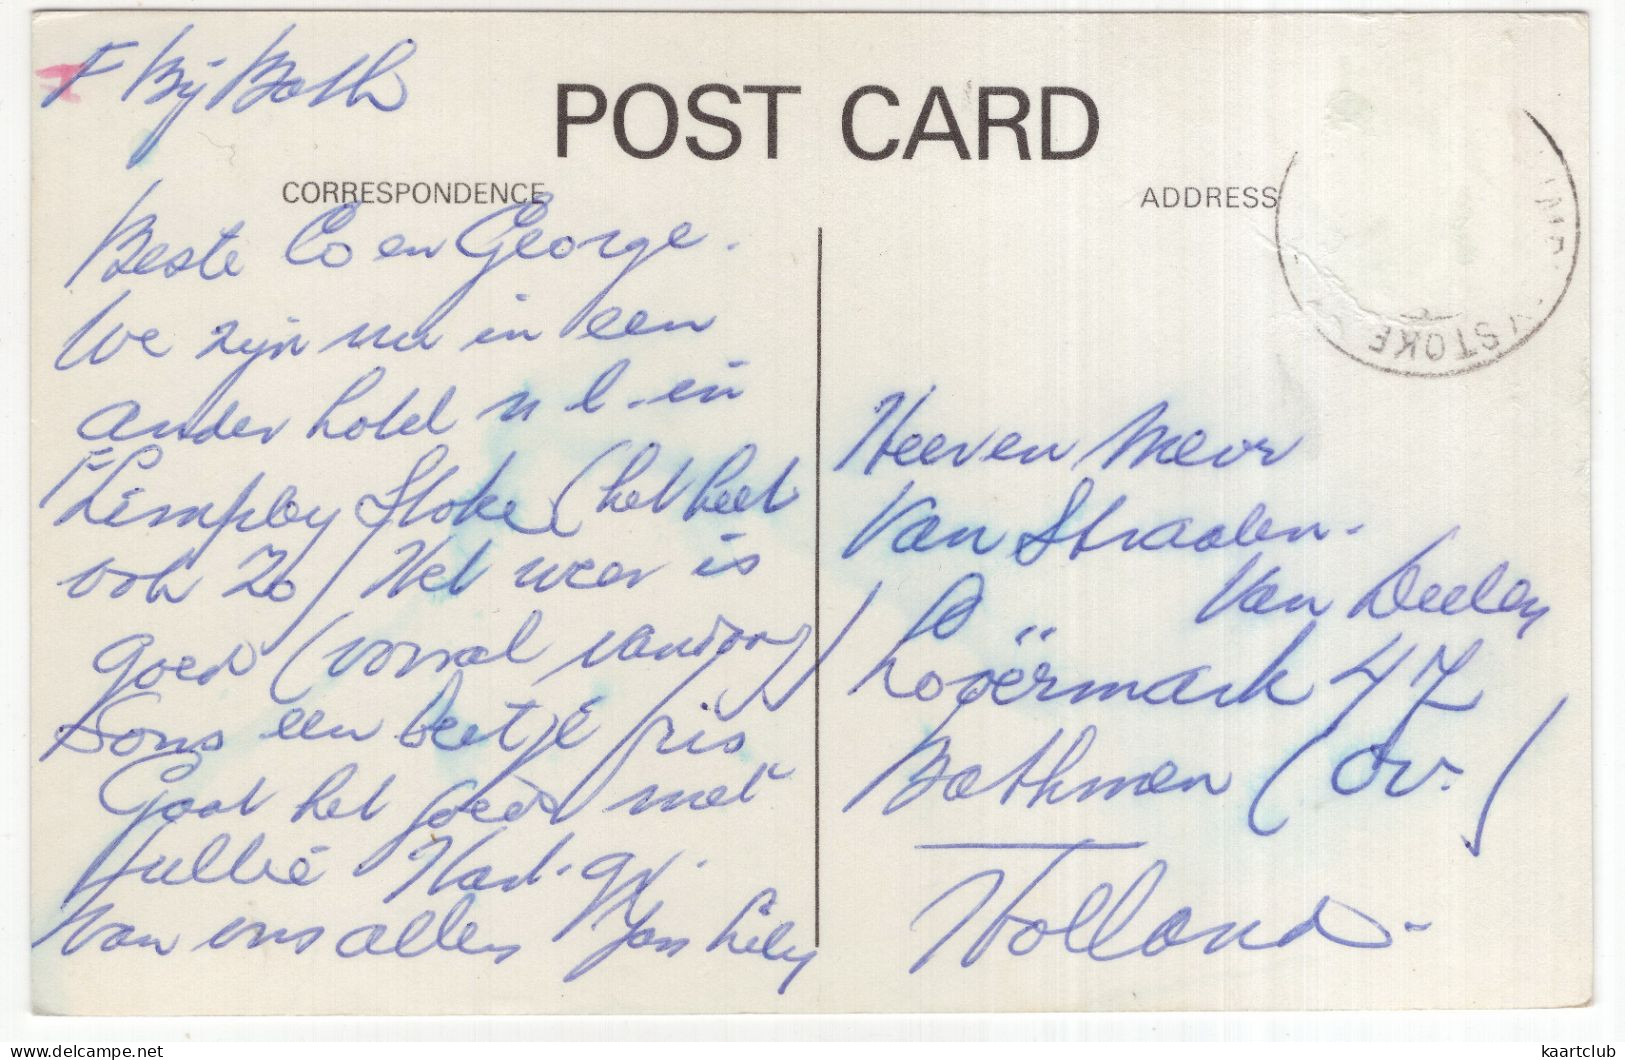 F Bij Bath
POST CARD
CORRESPONDENCE
ADDRESS
STOKE
Beste Co en George.
We zijn nu in een
ander hotel n l. in
F Limpley Stoke (het heet
ook zo) Het weer is
goed (vooral vandaag)
Soms een beetje fris
Gaat het goed met
Jullie Hart. gr.
Van ons allen Jan Lily
Heer en Mevr
Van Straalen.
Van Deelen
Looërmark 47
Bathmen (Ov.)
Holland.
delcampe.net
kaartclub